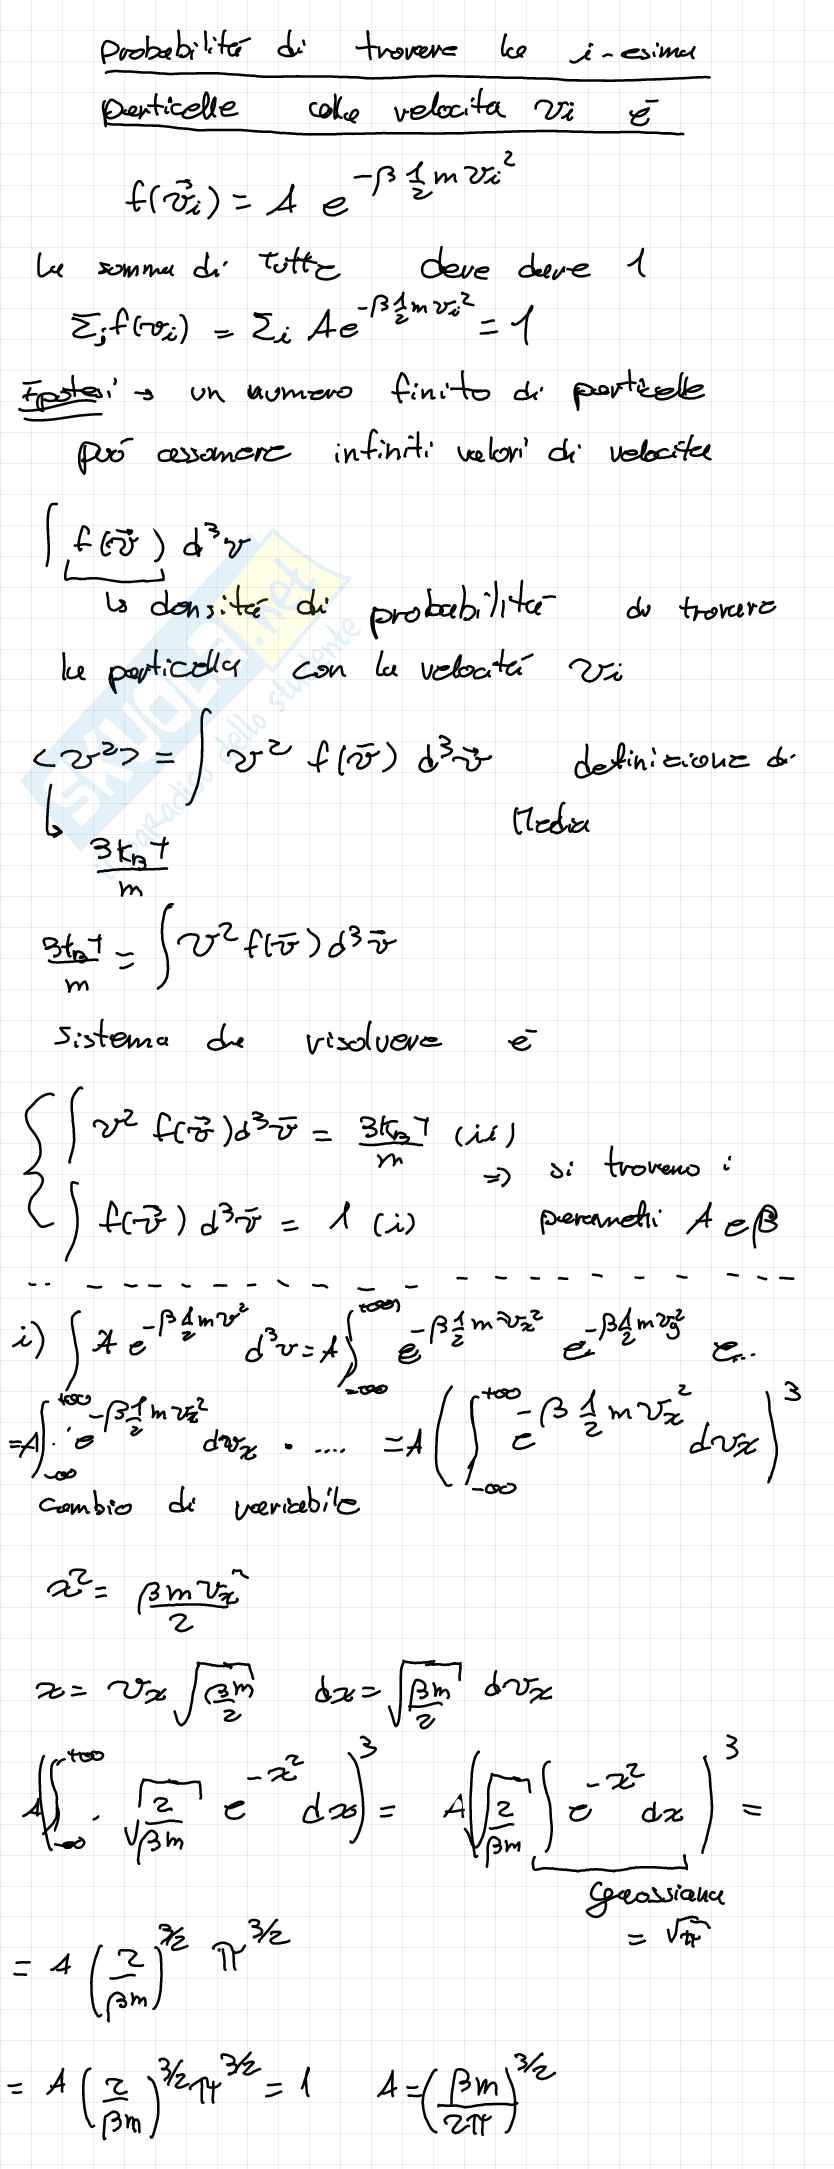 Probabilità di trovare la i-esima
particella colla velocita vi è
f(v⃗i) = A e^{-β 1/2 m vi²}
La somma di tutte deve dare 1
Σi f(vi) = Σi A e^{-β 1/2 m vi²} = 1
Ipotesi → un numero finito di particelle
può assumere infiniti valori di velocita
∫ f(v⃗) d³v
↳ densità di probabilità di trovare
la particella con la velocità vi
<v²> = ∫ v² f(v̄) d³v̄ definizione di
Media
↳ 3kBT/m
3kBT/m = ∫ v² f(v̄) d³v̄
Sistema da risolvere è
{ ∫ v² f(v⃗) d³v̄ = 3kBT/m (ii)
⇒ si trovano i
∫ f(v⃗) d³v̄ = 1 (i) parametri A e β
i) ∫ A e^{-β 1/2 m v²} d³v = A ∫_{-∞}^{+∞} e^{-β 1/2 m vx²} e^{-β 1/2 m vy²} e...
= A ∫_{-∞}^{+∞} e^{-β 1/2 m vx²} dvx · .... = A ( ∫_{-∞}^{+∞} e^{-β 1/2 m vx²} dvx )³
cambio di variabile
x² = βmvx²/2
x = vx √(βm/2) dx = √(βm/2) dvx
A ( ∫_{-∞}^{+∞} · √(2/βm) e^{-x²} dx )³ = A ( √(2/βm) ∫ e^{-x²} dx )³ =
Gaussiana
= √π
= A (2/βm)^{3/2} π^{3/2}
= A (2/βm)^{3/2} π^{3/2} = 1 A = (βm/2π)^{3/2}
SKUOLA.net
paradiso dello studente